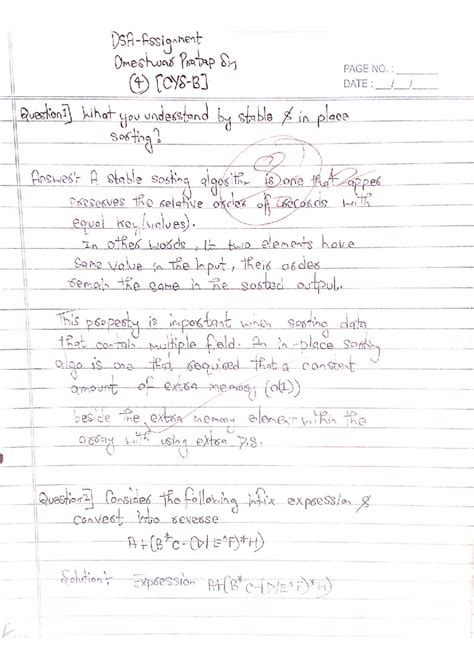 DSA-Assignment
Omeshwar Pratap
(4) [CYS-B]
PAGE NO. :
DATE : / /
Question1] What you understand by stable & in place
sorting?
Answer:- A stable sorting algorithm is one that
preserves the relative order of records with
equal key (values).
In other words, if two elements have
same value in the input, their order
remain the same in the sorted output.
This property is important when sorting data
that contain multiple field. An in-place sorting
algo is one that required that a constant
amount of extra memory (O(1))
beside the extra memory element within the
array with using extra D.S.
Question2] Consider the following infix expression &
convert into reverse
A+(B*C-(D/E^F)*H)
Solution:- Expression A+(B*C-(D/E^F)*H)